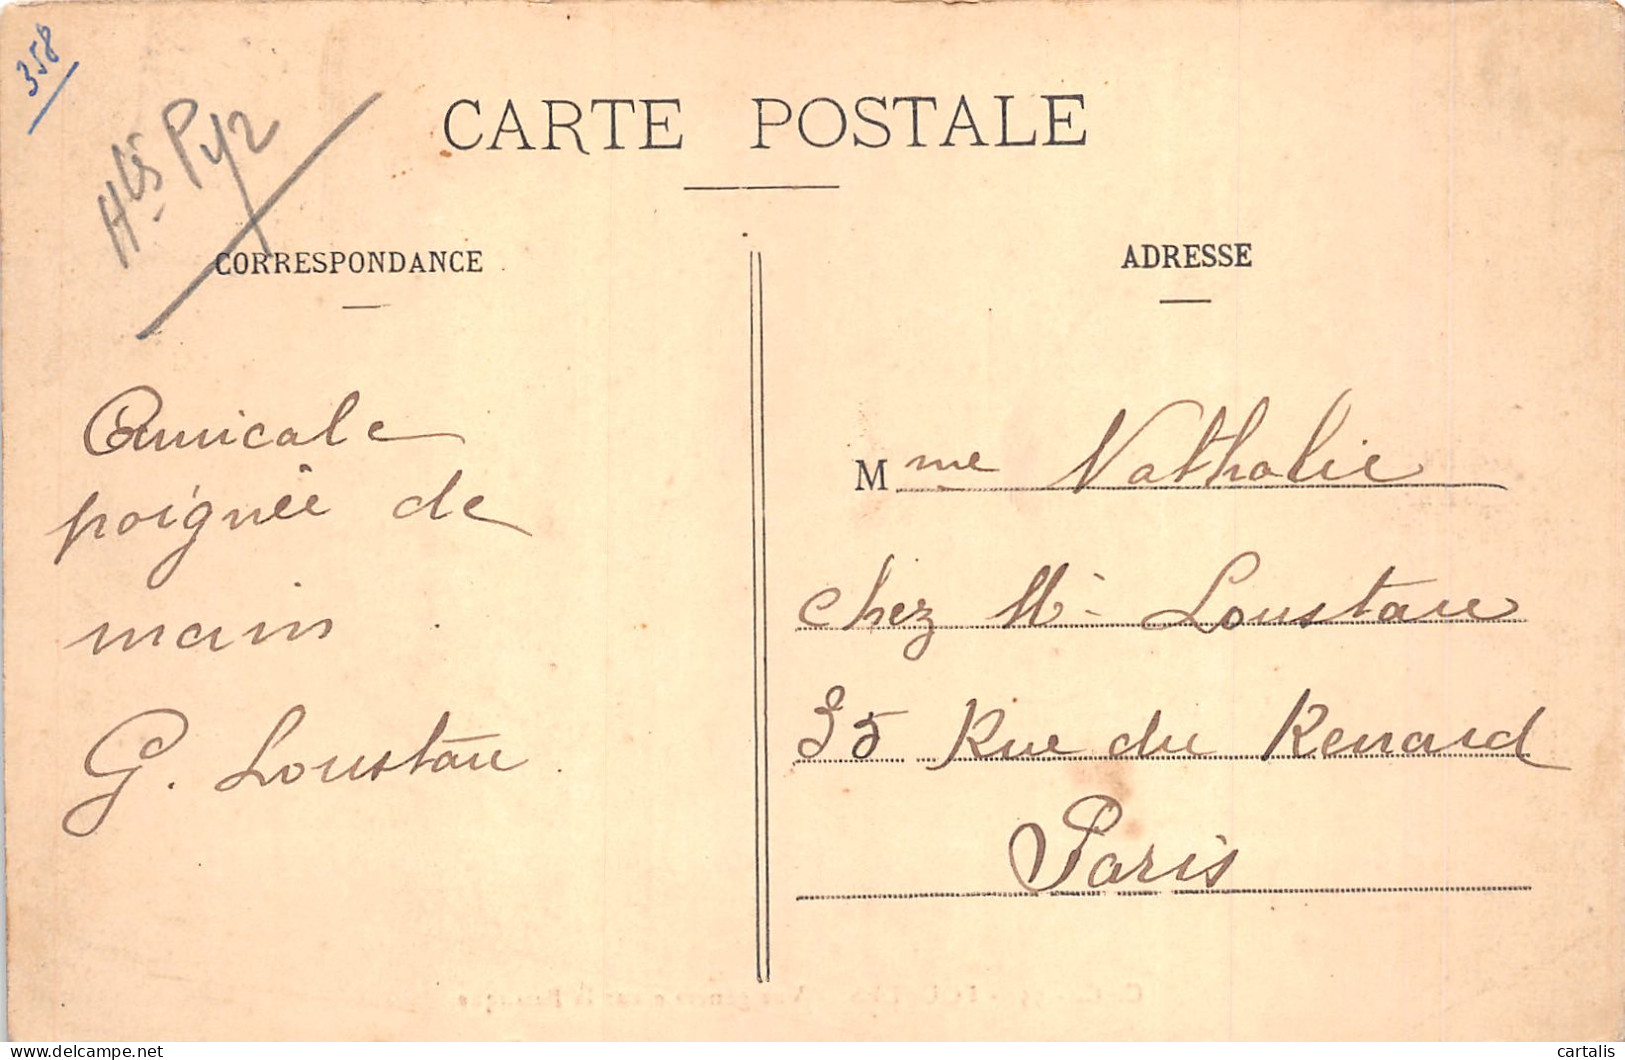 358
Htes Pyr
CARTE POSTALE
CORRESPONDANCE
Amicale
poignée de
main
G. Loustau
ADRESSE
Mme Nathalie
chez Mr Loustau
35 Rue du Renard
Paris
delcampe.net
cartalis